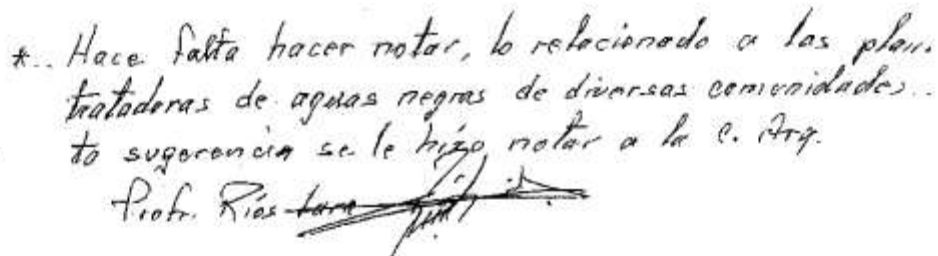 *.. Hace falta hacer notar, lo relacionado a las plan.
tratadoras de aguas negras de diversas comunidades..
to sugerencia se le hizo notar a la C. Arq.
Profr. Ríos Lara